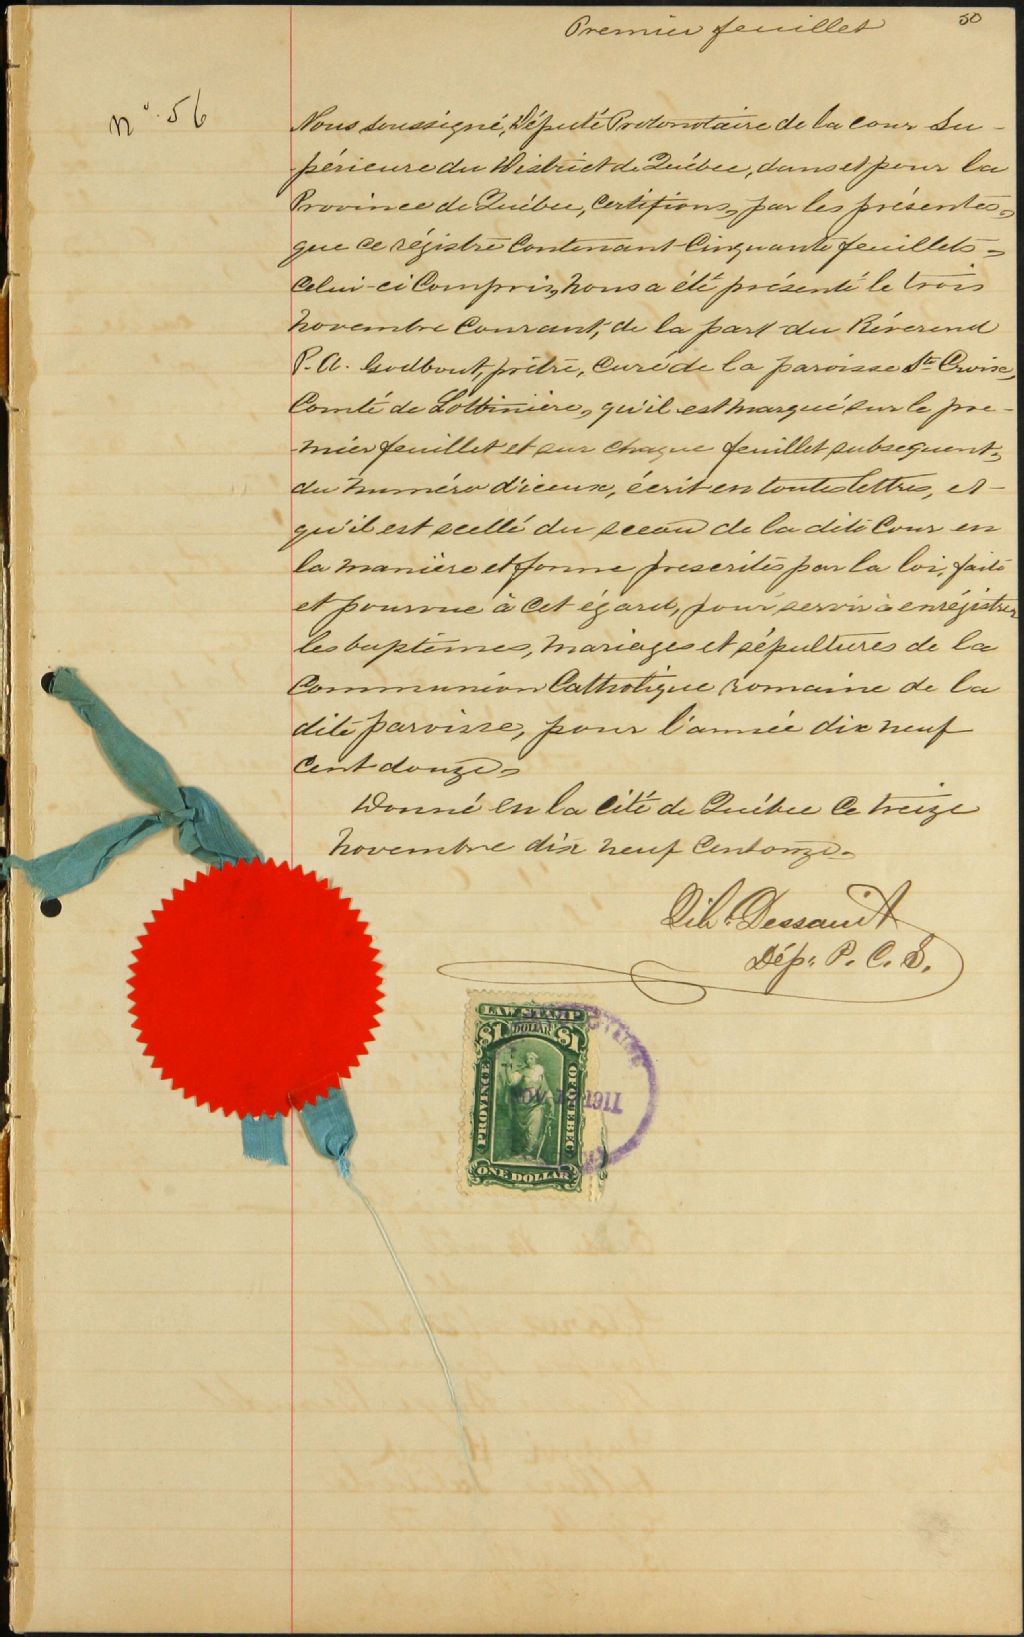 Premier feuillet
50
no. 56
Nous soussigné, Député Protonotaire de la cour Su-
périeure du District de Québec, dans et pour la
Province de Québec, certifions, par les présentes,
que ce régistre contenant cinquante feuillets
celui-ci compris, nous a été présenté le trois
novembre courant, de la part du Révérend
P. A. Godbout, prêtre, curé de la paroisse Ste Croix,
Comté de Lotbinière, qu'il est marqué sur le pre-
mier feuillet et sur chaque feuillet subsequent,
du numéro d'iceux, écrit en toutes lettres, et
qu'il est scellé du sceau de la dite Cour en
la manière et forme prescrites par la loi, faite
et pourvue à cet égard, pour servir à enrégistrer
les baptêmes, mariages et sépultures de la
Communion Catholique romaine de la
dite paroisse, pour l'année dix neuf
cent douze.
Donné en la cité de Québec ce treize
novembre dix neuf cent onze.
Dessault
Dép. P. C. S.
LAW STAMP
$1 DOLLAR $1
PROVINCE
OF QUEBEC
ONE DOLLAR
1911